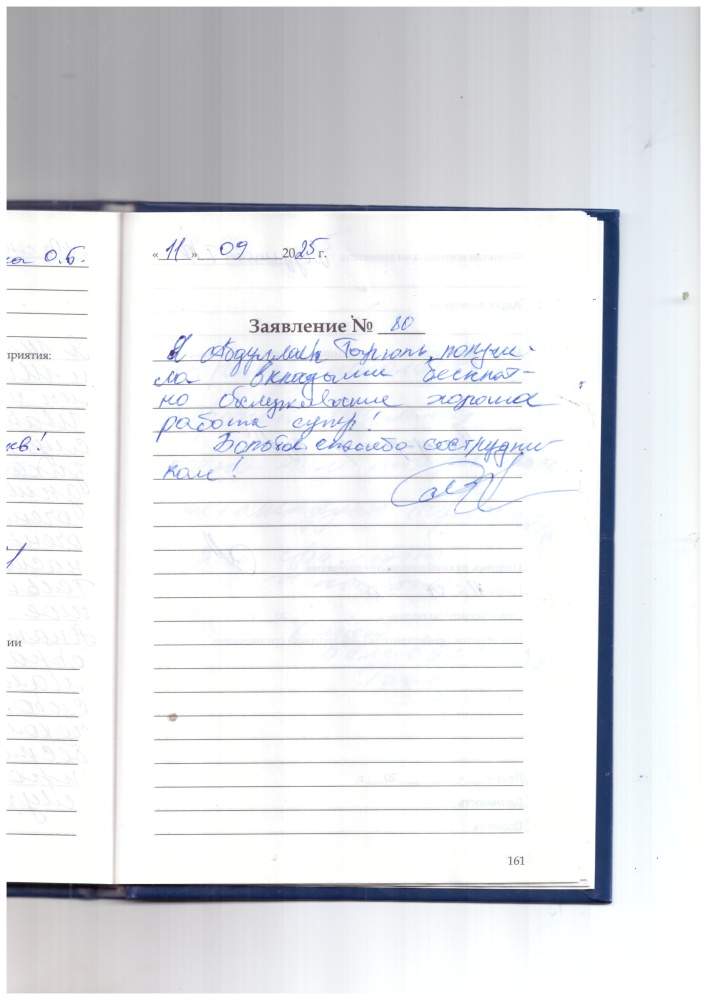 ка О.Б.
приятия:
кв!
ии
« 11 » 09 2025 г.
Заявление № 80
Я Абдуллаев получи-
ла вкладыши бесплат-
но обслуживание хорошая
работа супер!
спасибо сострудни
кам!
161